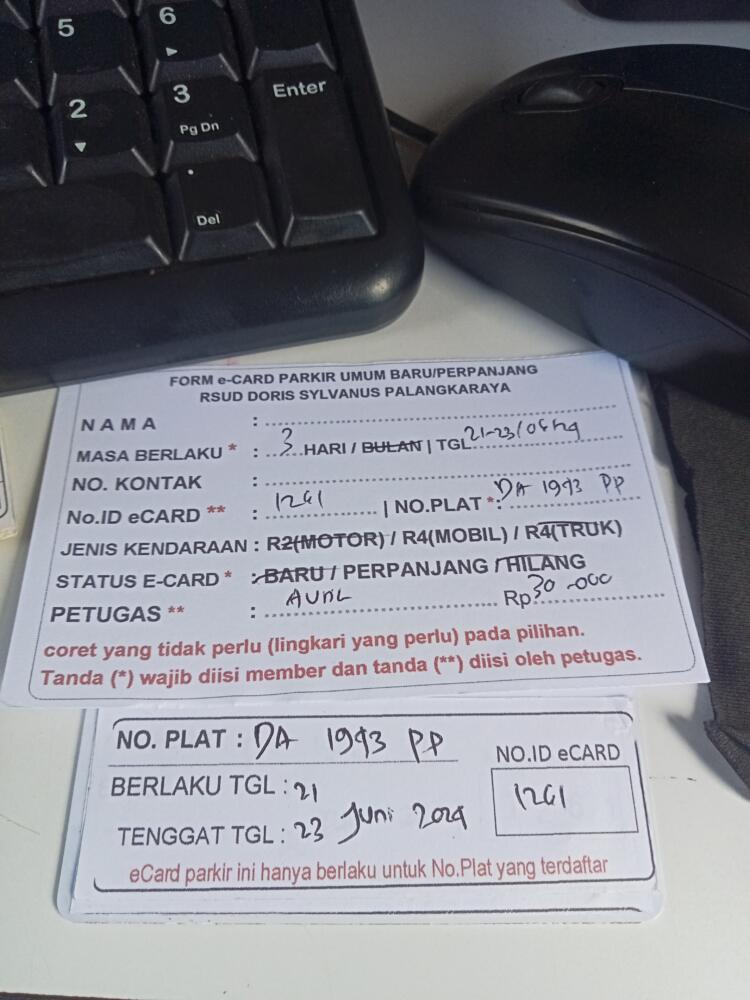 5
6
2
3
Pg Dn
Enter
.
Del
FORM e-CARD PARKIR UMUM BARU/PERPANJANG
RSUD DORIS SYLVANUS PALANGKARAYA
NAMA :
MASA BERLAKU * : 3 HARI / BULAN | TGL 21-23/06
NO. KONTAK :
No.ID eCARD ** : 1261 | NO.PLAT *: DA 1993 PP
JENIS KENDARAAN : R2(MOTOR) / R4(MOBIL) / R4(TRUK)
STATUS E-CARD * : BARU / PERPANJANG / HILANG
PETUGAS ** : AURIL Rp. 30.000
coret yang tidak perlu (lingkari yang perlu) pada pilihan.
Tanda (*) wajib diisi member dan tanda (**) diisi oleh petugas.
NO. PLAT : DA 1993 PP
NO.ID eCARD
BERLAKU TGL : 21
1261
TENGGAT TGL : 23 Juni 2024
eCard parkir ini hanya berlaku untuk No.Plat yang terdaftar